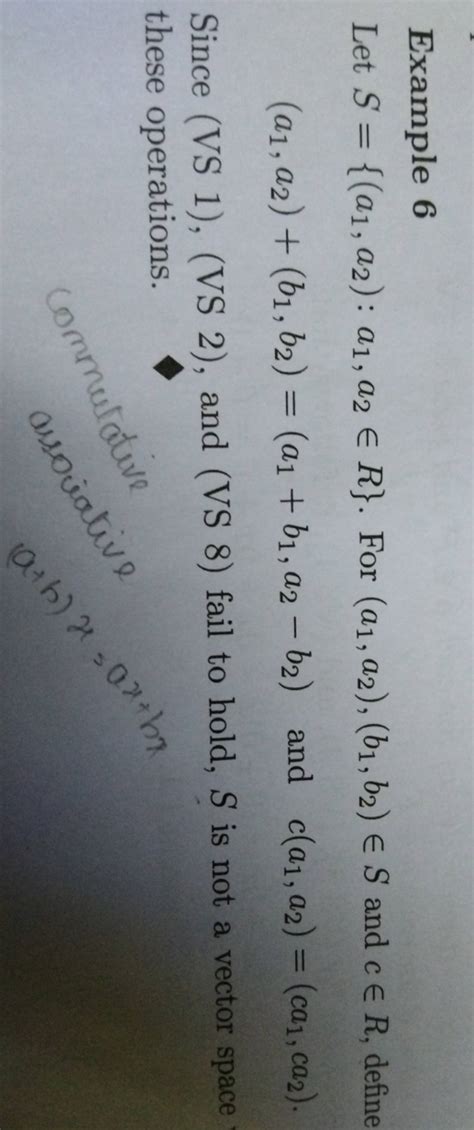 Example 6
Let S = {(a₁, a₂): a₁, a₂ ∈ R}. For (a₁, a₂), (b₁, b₂) ∈ S and c ∈ R, define
(a₁, a₂) + (b₁, b₂) = (a₁ + b₁, a₂ − b₂) and c(a₁, a₂) = (ca₁, ca₂).
Since (VS 1), (VS 2), and (VS 8) fail to hold, S is not a vector space
these operations. ◆
commutative
associative
(a+b) x = ax+bx